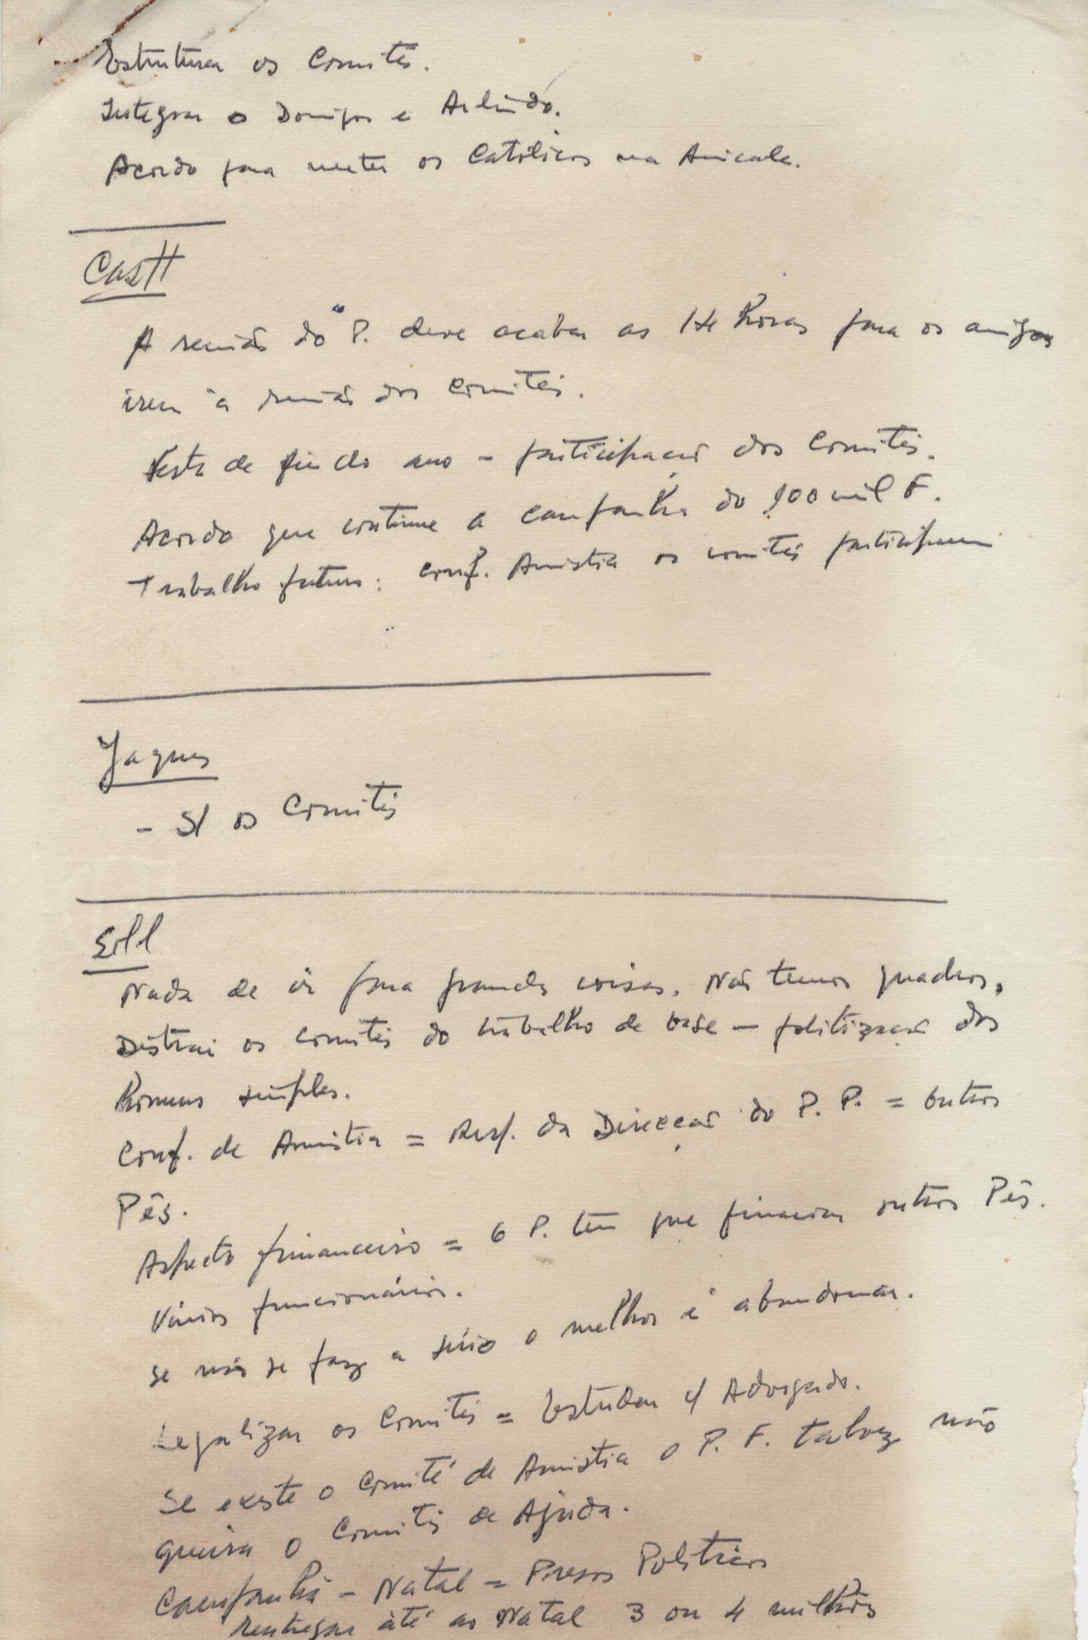 Estruturar os Comités.
Integrar o Domifos e Arlindo.
Acordo para meter os Católicos na Amicale.
Cast
A reunião do P. deve acabar as 14 horas para os amigos
irem à reunião dos comités.
Festa de fim do ano - participação dos Comités.
Acordo que continue a campanha do 900 mil F.
Trabalho futuro: conf. Amistia os comités participarem
Jaques
- S/ os Comités
Nada de ir para grandes coisas. Não temos quadros.
Distrai os comités do trabalho de base - politização dos
homens simples.
Conf. de Amistia = Resp. da Direcção do P. P. = outros
Pês.
Aspecto financeiro = O P. tem que financiar outros Pês.
Vários funcionários.
Se não se faz a sério o melhor é abandonar.
Legalizar os Comités = Estudar c/ Advogado.
Se existe o Comité de Amistia o P. F. talvez não
queira o Comités de Ajuda.
Campanha - Natal = Presos Politicos
até ao Natal 3 ou 4 milhões